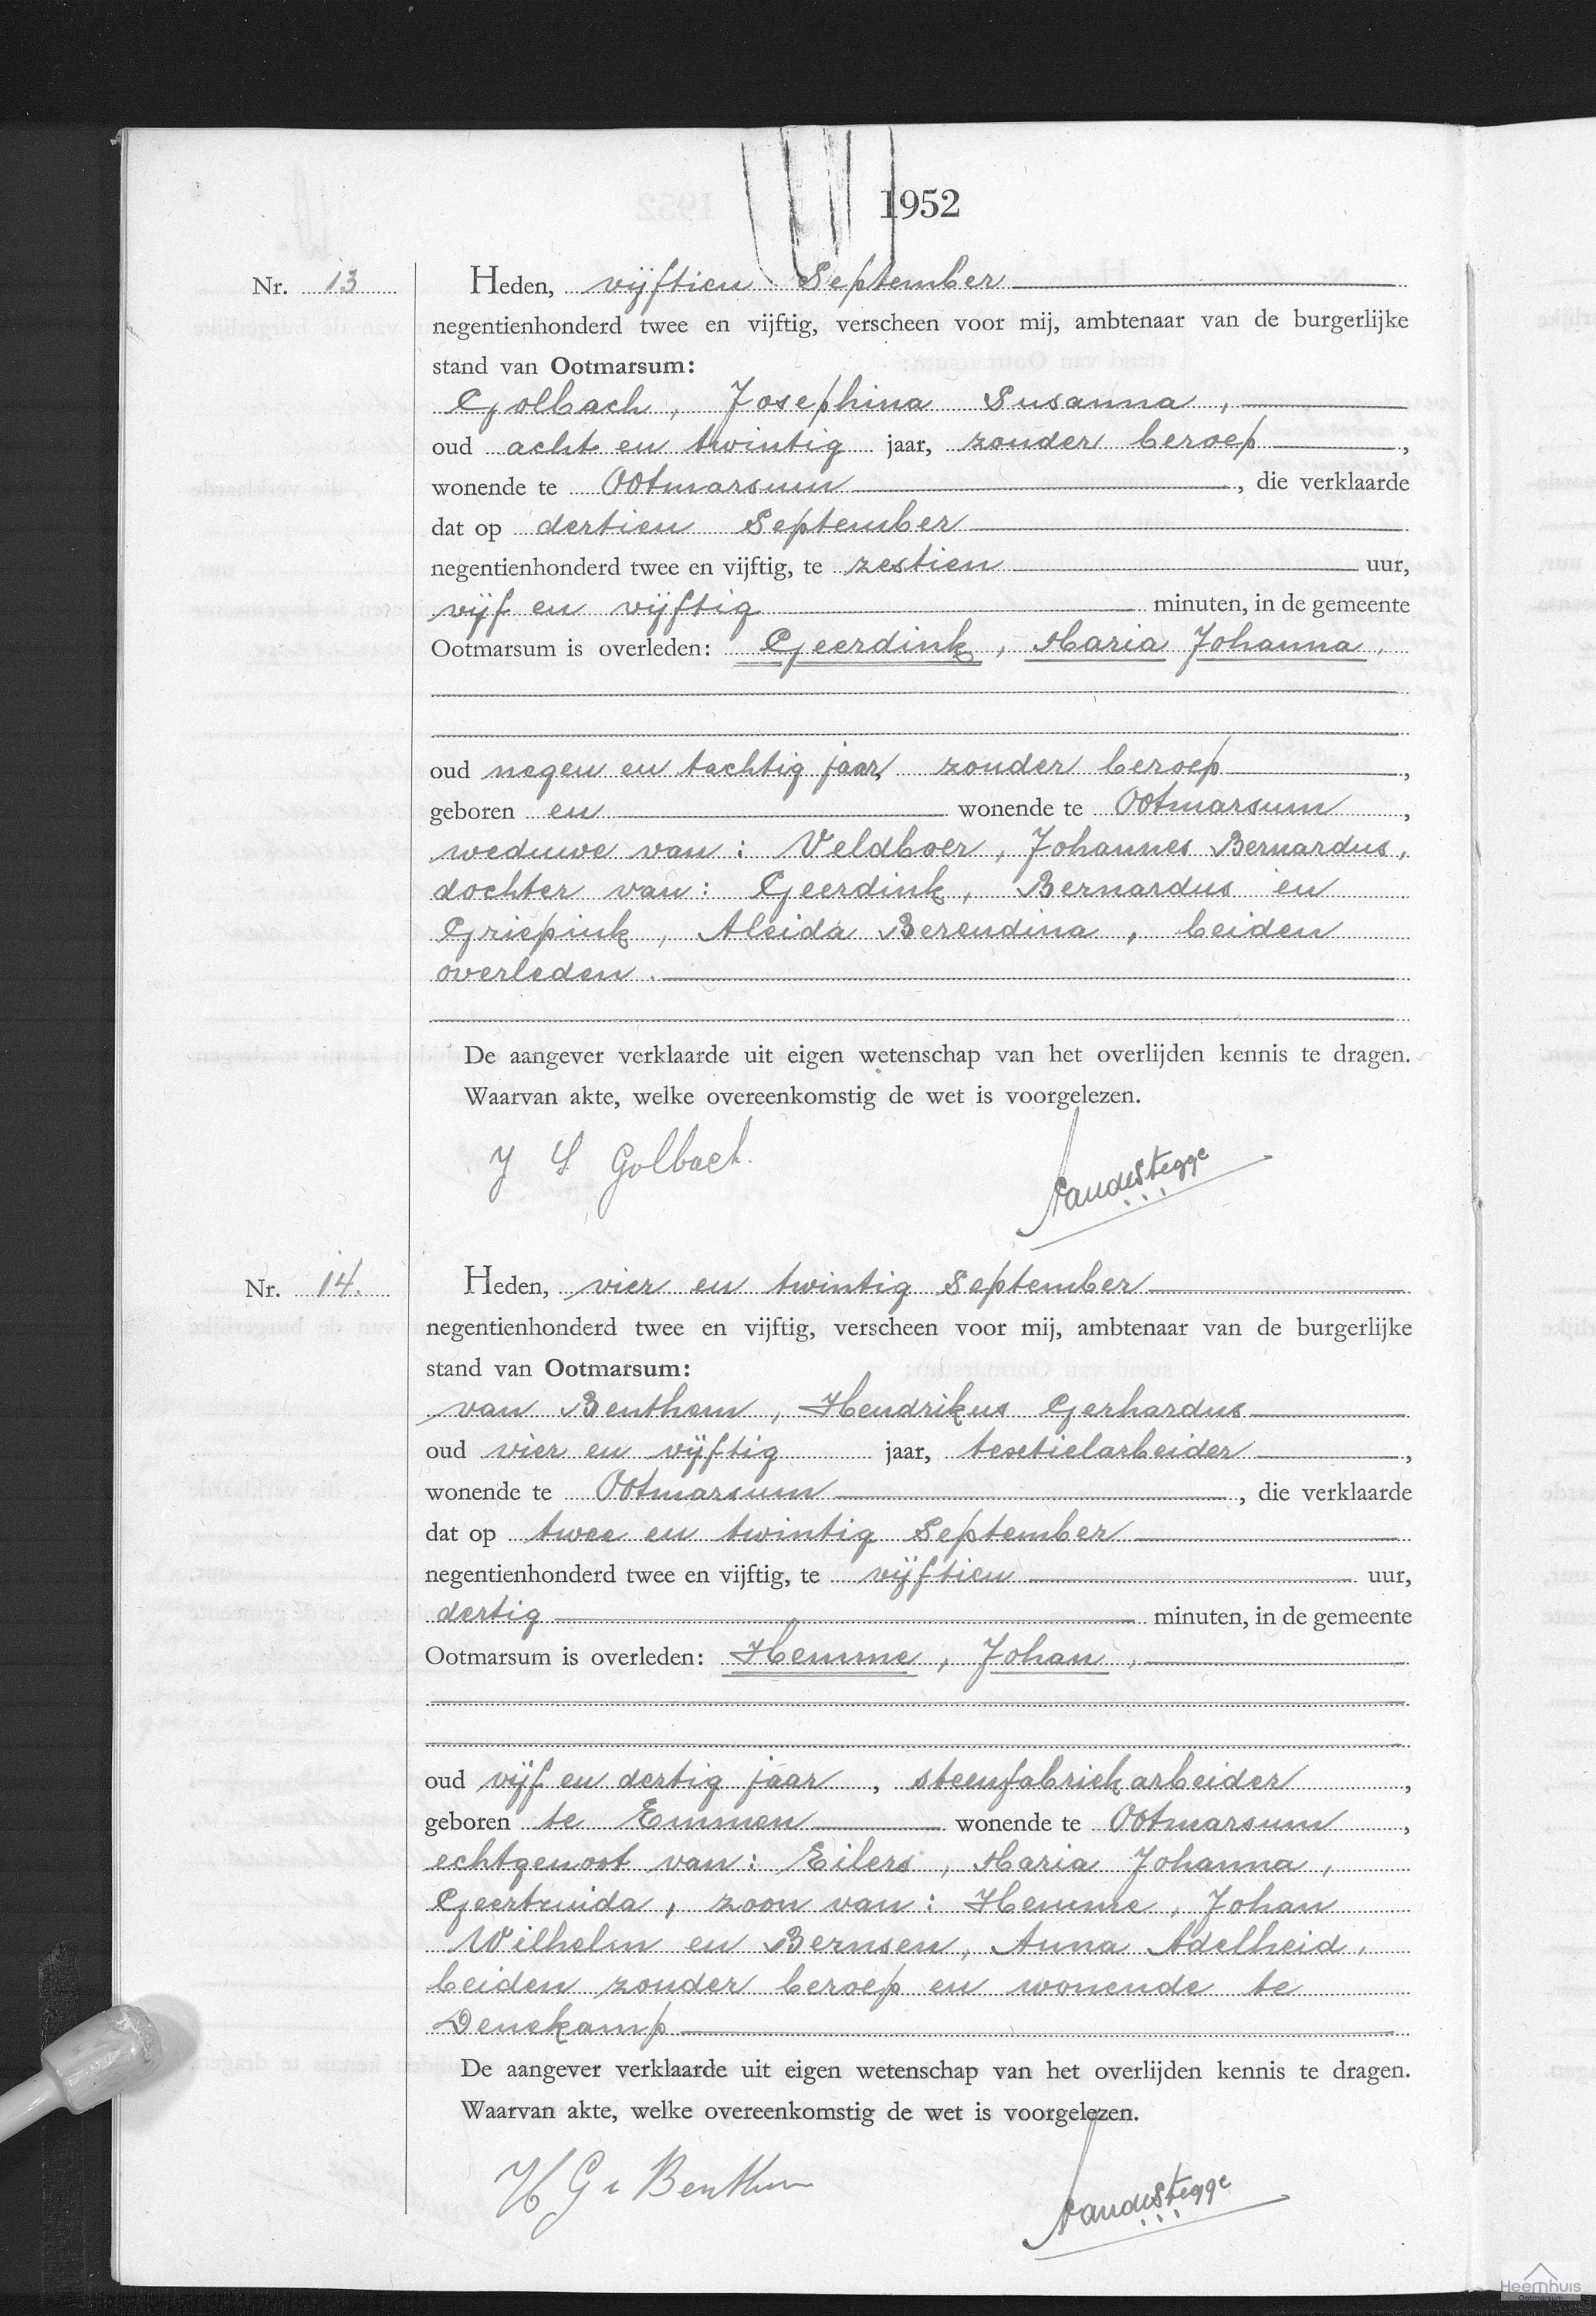 1952
Nr. 13
Heden, vijftien September
negentienhonderd twee en vijftig, verscheen voor mij, ambtenaar van de burgerlijke
stand van Ootmarsum:
Golbach, Josephina Susanna,
oud acht en twintig jaar, zonder beroep,
wonende te Ootmarsum, die verklaarde
dat op dertien September
negentienhonderd twee en vijftig, te zestien uur,
vijf en vijftig minuten, in de gemeente
Ootmarsum is overleden: Geerdink, Maria Johanna,
oud negen en tachtig jaar, zonder beroep,
geboren en wonende te Ootmarsum,
weduwe van: Veldboer, Johannes Bernardus,
dochter van: Geerdink, Bernardus en
Griepink, Aleida Berendina, beiden
overleden.
De aangever verklaarde uit eigen wetenschap van het overlijden kennis te dragen.
Waarvan akte, welke overeenkomstig de wet is voorgelezen.
J S Golbach.
Nr. 14.
Heden, vier en twintig September
negentienhonderd twee en vijftig, verscheen voor mij, ambtenaar van de burgerlijke
stand van Ootmarsum:
van Benthem, Hendrikus Gerhardus
oud vier en vijftig jaar, textielarbeider,
wonende te Ootmarsum, die verklaarde
dat op twee en twintig September
negentienhonderd twee en vijftig, te vijftien uur,
dertig minuten, in de gemeente
Ootmarsum is overleden: Hemme, Johan,
oud vijf en dertig jaar, steenfabriekarbeider,
geboren te Emmen wonende te Ootmarsum,
echtgenoot van: Eilers, Maria Johanna,
Geertruida, zoon van: Hemme, Johan
Wilhelm en Bernsen, Anna Adelheid,
beiden zonder beroep en wonende te
Denekamp
De aangever verklaarde uit eigen wetenschap van het overlijden kennis te dragen.
Waarvan akte, welke overeenkomstig de wet is voorgelezen.
H G v Benthem
Heemhuis
Ootmarsum